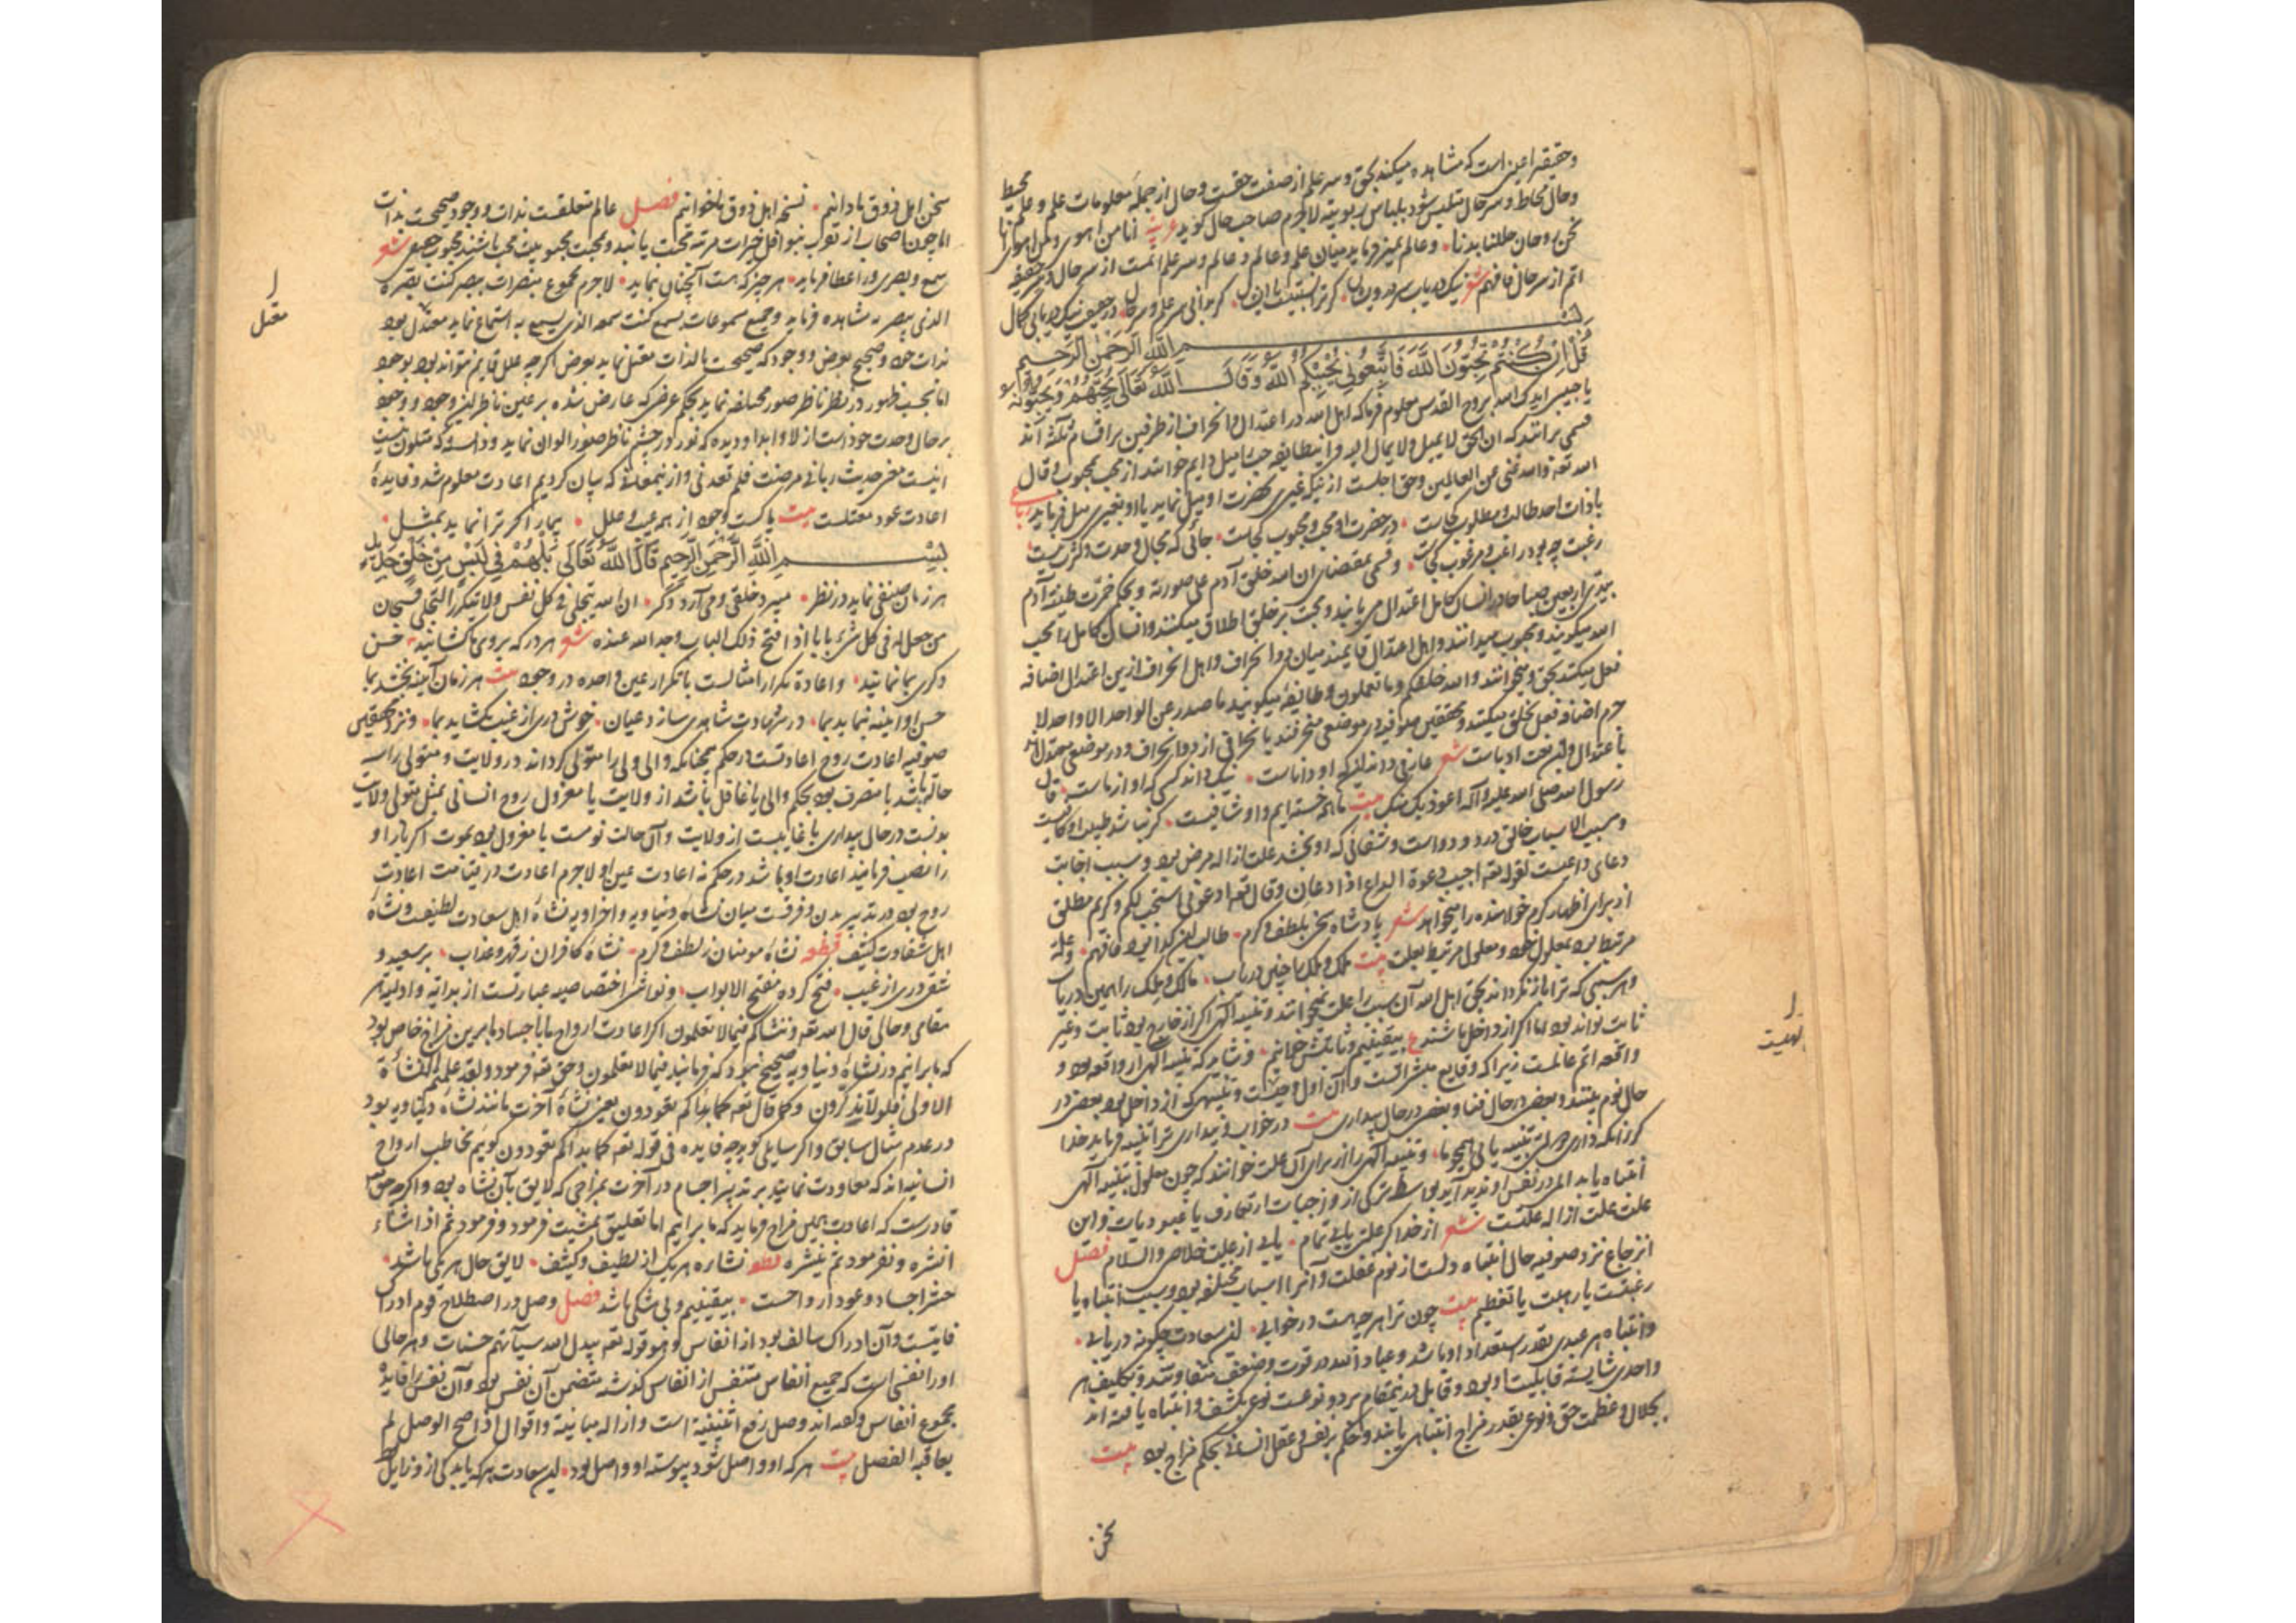 وحقیقة اعیان است که مشاهده میکند بحق و سر علم از صفت حقست و حال از جمله معلومات علم و علم محیط
وحال محاط و سر حال متلبس شود بلباس ربوبیته لاجرم صاحب حال کوید عربیه انا من اهوی ومن اهوی انا
نحن روحان حللنا بدنا و عالم تمیز فرماید میان علم و عالم و سر علم اتمست از سر حال و سر حقیقه
اتم از سر حال فافهم شعر نیک دریاب سر در ویشان کر ترا نسبتیست با ایشان کر بدانی سر علم و سر حال در حقیقت نیک دریابی کمال
بسم الله الرحمن الرحیم
قل ان کنتم تحبون الله فاتبعونی یحببکم الله وقال الله تعالی یحبهم ویحبونه
یا حبیبی ایدک الله بروح القدس معلوم فرما که اهل الله در اعتدال و انحراف از طرفین بر اقسام ثلثه اند
قسمی برانند که ان الحق لا یمیل ولا یمال الیه و این طایفه حب را میل دایم خوانند از محب بمحبوب وقال
الله تعه والله غنی عن العالمین وحق اجلست از آنکه غیری بحضرت او میل نماید یا او بغیری میل فرماید رباعی
با ذات احد طالب و مطلوب کجاست در حضرت او محب و محبوب کجاست جائی که مجال وحدت و کثرت نیست
رغبت چه بود راغب و مرغوب کجاست و قسمی بمقتضای ان الله خلق آدم علی صورته و بحکم خمرت طینة آدم
بیدی اربعین صباحا در انسان کامل اعتدال می یابند و محبت بر خلق اطلاق میکنند و انسان کامل را محب
الله میکویند و محبوب میدانند و اهل اعتدال قایمند میان دو انحراف و اهل انحراف ازین اعتدال اضافه
فعل میکنند بحق و میخوانند والله خلقکم وما تعملون و طایفه میکویند ما صدر عن الواحد الا واحد لا
جرم اضافه فعل بخلق میکنند و محققین صوفیه در موضعی منحرفند بانحرافی از دو انحراف و در موضعی معتدل اند
باعتدال و این بحث ادباست شعر عارفی داند این که او داناست نیک داند کسی که او از ماست قال
رسول الله صلی الله علیه وآله اعوذ بک منک بیت ما همه خسته ایم و او شافیست کر نباشد طبیب او کافیست
ومسبب الاسباب خالق درد و دواست و شفائی که او بخشد علت ازاله مرض بود و سبب اجابت
دعای داعیست لقوله تعه اجیب دعوة الداع اذا دعان وقال تعه ادعونی استجب لکم و کریم مطلق
از برای اظهار کرم خواهنده را میخواهد شعر پادشاه بحر بلطف و کرم طالب این کدا بود فافهم و علة
مرتبط بود بمعلول خود و معلول مرتبط بعلت بیت ملک و ملک را چنین دریاب مالک و ملک را همین دریاب
وهر سببی که ترا باز نکرداند بحق اهل الله آن سبب را علت نمیخوانند و تنبیه الهی اکر از خارج بود ثابت و غیر
ثابت تواند بود اما اکر از داخل باشند ع بیقینیم و ثابتش خوانیم و شاید که تنبیه الهی از واقعه بود و
واقعه اتم عالمست زیرا که وقایع مبشراتست و آن اول وحیست و تنبیهی که از داخل بود بعضی در
حال نوم بینند و بعضی در حال فنا و بعضی در حال بیداری بیت در خواب و بیداری ترا تنبیه فرماید خدا
کر زانکه داری حس تنبیه یابی همچو ما و تنبیه الهی را از برای آن علت خوانند که چون معلول بتنبیه الهی
انتباه یابد المی در نفس او پدید آید بواسطه ترکی از واجبات از تعارف یا عبودیات و این
علت علت ازاله علتست شعر از خدا کر علتی یابی تمام یابی از علت خلاصی والسلام فصل
انزعاج نزد صوفیه حال انتباه دلست از نوم غفلت و آنرا اسباب مختلفه بود و سبب انتباه یا
رغبتست یا رهبت یا تعظیم بیت چون ترا هر چه هست در خوابی این سعادت چکونه دریابی
وانتباه هر عبدی بقدر استعداد او باشد و عباد الله در قوت و ضعف متفاوتند و تکلیف هر
واحدی شایسته قابلیت او بود و قابل درین مقام بر دو نوعست نوعی بکشف و انتباه یافته اند
بجلال و عظمت حق و نوعی بقدر مزاج انتباهی یابند و حکم بر نفس و عقل انسانی بحکم مزاج بود بیت
سخن
رهبت
سخن اهل ذوق ما دانیم نسخه اهل ذوق ما خوانیم فصل عالم متعلقست بذات و وجود صحیحست بذات
اما چون اصحاب از تقرب بنوافل خیرات مرتبه محبت یابند و محبت محبوبیت محب باشند محبوب جمیع شعر
سمع و بصری ورا عطا فرماید هر چیز که هست آنچنان بنماید لاجرم مجموع مبصرات ببصر کنت بصره
الذی یبصر به مشاهده فرماید و جمیع مسموعات بسمع کنت سمعه الذی یسمع به استماع نماید معتدل بود
بذات خود و صحیح بعوض و وجود که صحیحست بالذات معتل نماید بعرض اکرچه علل قایم نتواند بود بوجود
اما بحسب ظهور در نظر ناظر صور مختلفه نماید بحکم عرضی که عارض شده بر عین ناظر این وجود و وجود
بر حال وحدت خود است ازلا و ابدا و دیده که نور در چشم ناظر صور الوان نماید و دانسته که متلون نیست
اینست معنی حدیث ربانی مرضت فلم تعدنی و از این معانی که بیان کردیم اعادت معلوم شد و فایده
اعادت عود معتلست بیت پاکست وجود از همه عیب و علل بیمار اکر ترا نماید بمثل
بسم الله الرحمن الرحیم قال الله تعالی بل هم فی لبس من خلق جدید
هر زمان صنفی نماید در نظر میبرد خلقی و می آرد دکر ان الله یتجلی فی کل نفس ولا یتکرر التجلی فسبحان
من جعل له فی کل شیء بابا اذا فتح ذلک الباب وجد الله عنده شعر هر در که بروی ما کشانید حسن
دکری بما نمانید و اعادة تکرار امثالست یا تکرار عین واحده در وجود بیت هر زمان آینه بخشد بما
حسن او آینه بنماید بما در شهادت شاهدی سازد عیان خوش دری از غیب بکشاید بما و نزد محققین
صوفیه اعادت روح اعادتست در حکم همچنانکه والی ولی را متولی کرداند در ولایت و متولی را سه
حالت باشد یا متصرف بود بحکم والی یا غافل باشد از ولایت یا معزول روح انسانی بمثل متولی ولایت
بدنست در حال بیداری یا غایبست از ولایت و آن حالت نومست یا معزول بود بموت اکر بار او
را نصب فرمایند اعادت او باشد در حکم نه اعادت عین او لاجرم اعادت در قیامت اعادت
روح بود در تدبیر بدن و فرقست میان نشاه دنیاویه و اخراویه نشاه اهل سعادت لطیفست و نشاه
اهل شقاوت کثیف قطعه نشاه مومنان ز لطف و کرم نشاه کافران ز قهر و عذاب بر سعید و
شقی دری از غیب فتح کرده مفتح الابواب و نواشی اختصاصیه عبارتست از بدایه و اولیه هر
مقامی و حالی قال الله تعه وننشاکم فیما لا تعلمون اکر اعادت ارواح ما باجساد ما برین مزاج خاص بود
که ما برانیم در نشاه دنیاویه صحیح نبود که فرماید فیما لا تعلمون و حق تعه فرمود ولقد علمتم النشاة
الاولی فلولا تذکرون وکما قال تعه کما بداکم تعودون یعنی نشاه آخرت مانند نشاه دنیاویه بود
در عدم مثال سابق و اکر سایلی کوید چه فایده فی قوله تعه کما بداکم تعودون کویم مخاطب ارواح
انسانیه اند که معاودت نمایند بر تدبیر اجسام در آخرت بمزاجی که لایق بآن نشاه بود و اکرچه حق تعه
قادرست که اعادت بهمین مزاج فرماید که ما برانیم اما تعلیق بمشیت فرمود و فرمود ثم اذا شاء
انشره و نفرمود ثم ینشره قطعه نشاره هر یک از لطیف و کثیف لایق حال هر یکی باشد
حشر اجساد و عود ارواحست بیقینیم و بی شکی باشد فصل وصل در اصطلاح قوم ادراک
فایتست و آن ادراک سالف بود از انفاس وهو قوله تعه یبدل الله سیآتهم حسنات و هر حالی
او را نفسی است که جمیع انفاس متنفس از انفاس کذشته متضمن آن نفس بود و آن نفس را فایده
مجموع انفاس و کفته اند وصل رفع اثنینیة است و ازاله مباینة و اقوال اذا صح الوصل لم
یعاقبه الفصل بیت هر که او واصل شود پیوسته او واصل بود این سعادت هر که یابد کی از و زایل بود
معتل